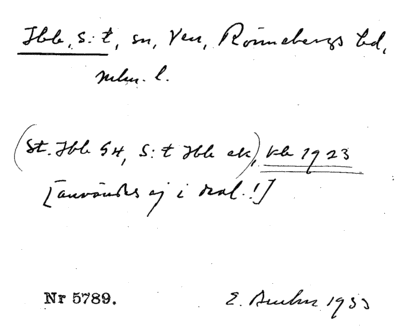 Ibb, S:t, sn, Ven, Rönnebergs hd,
mlm. l.
(St. Ibb GH, S:t Ibb ek), kb 1923
[användes ej i tal!]
Nr 5789.
E. 1933